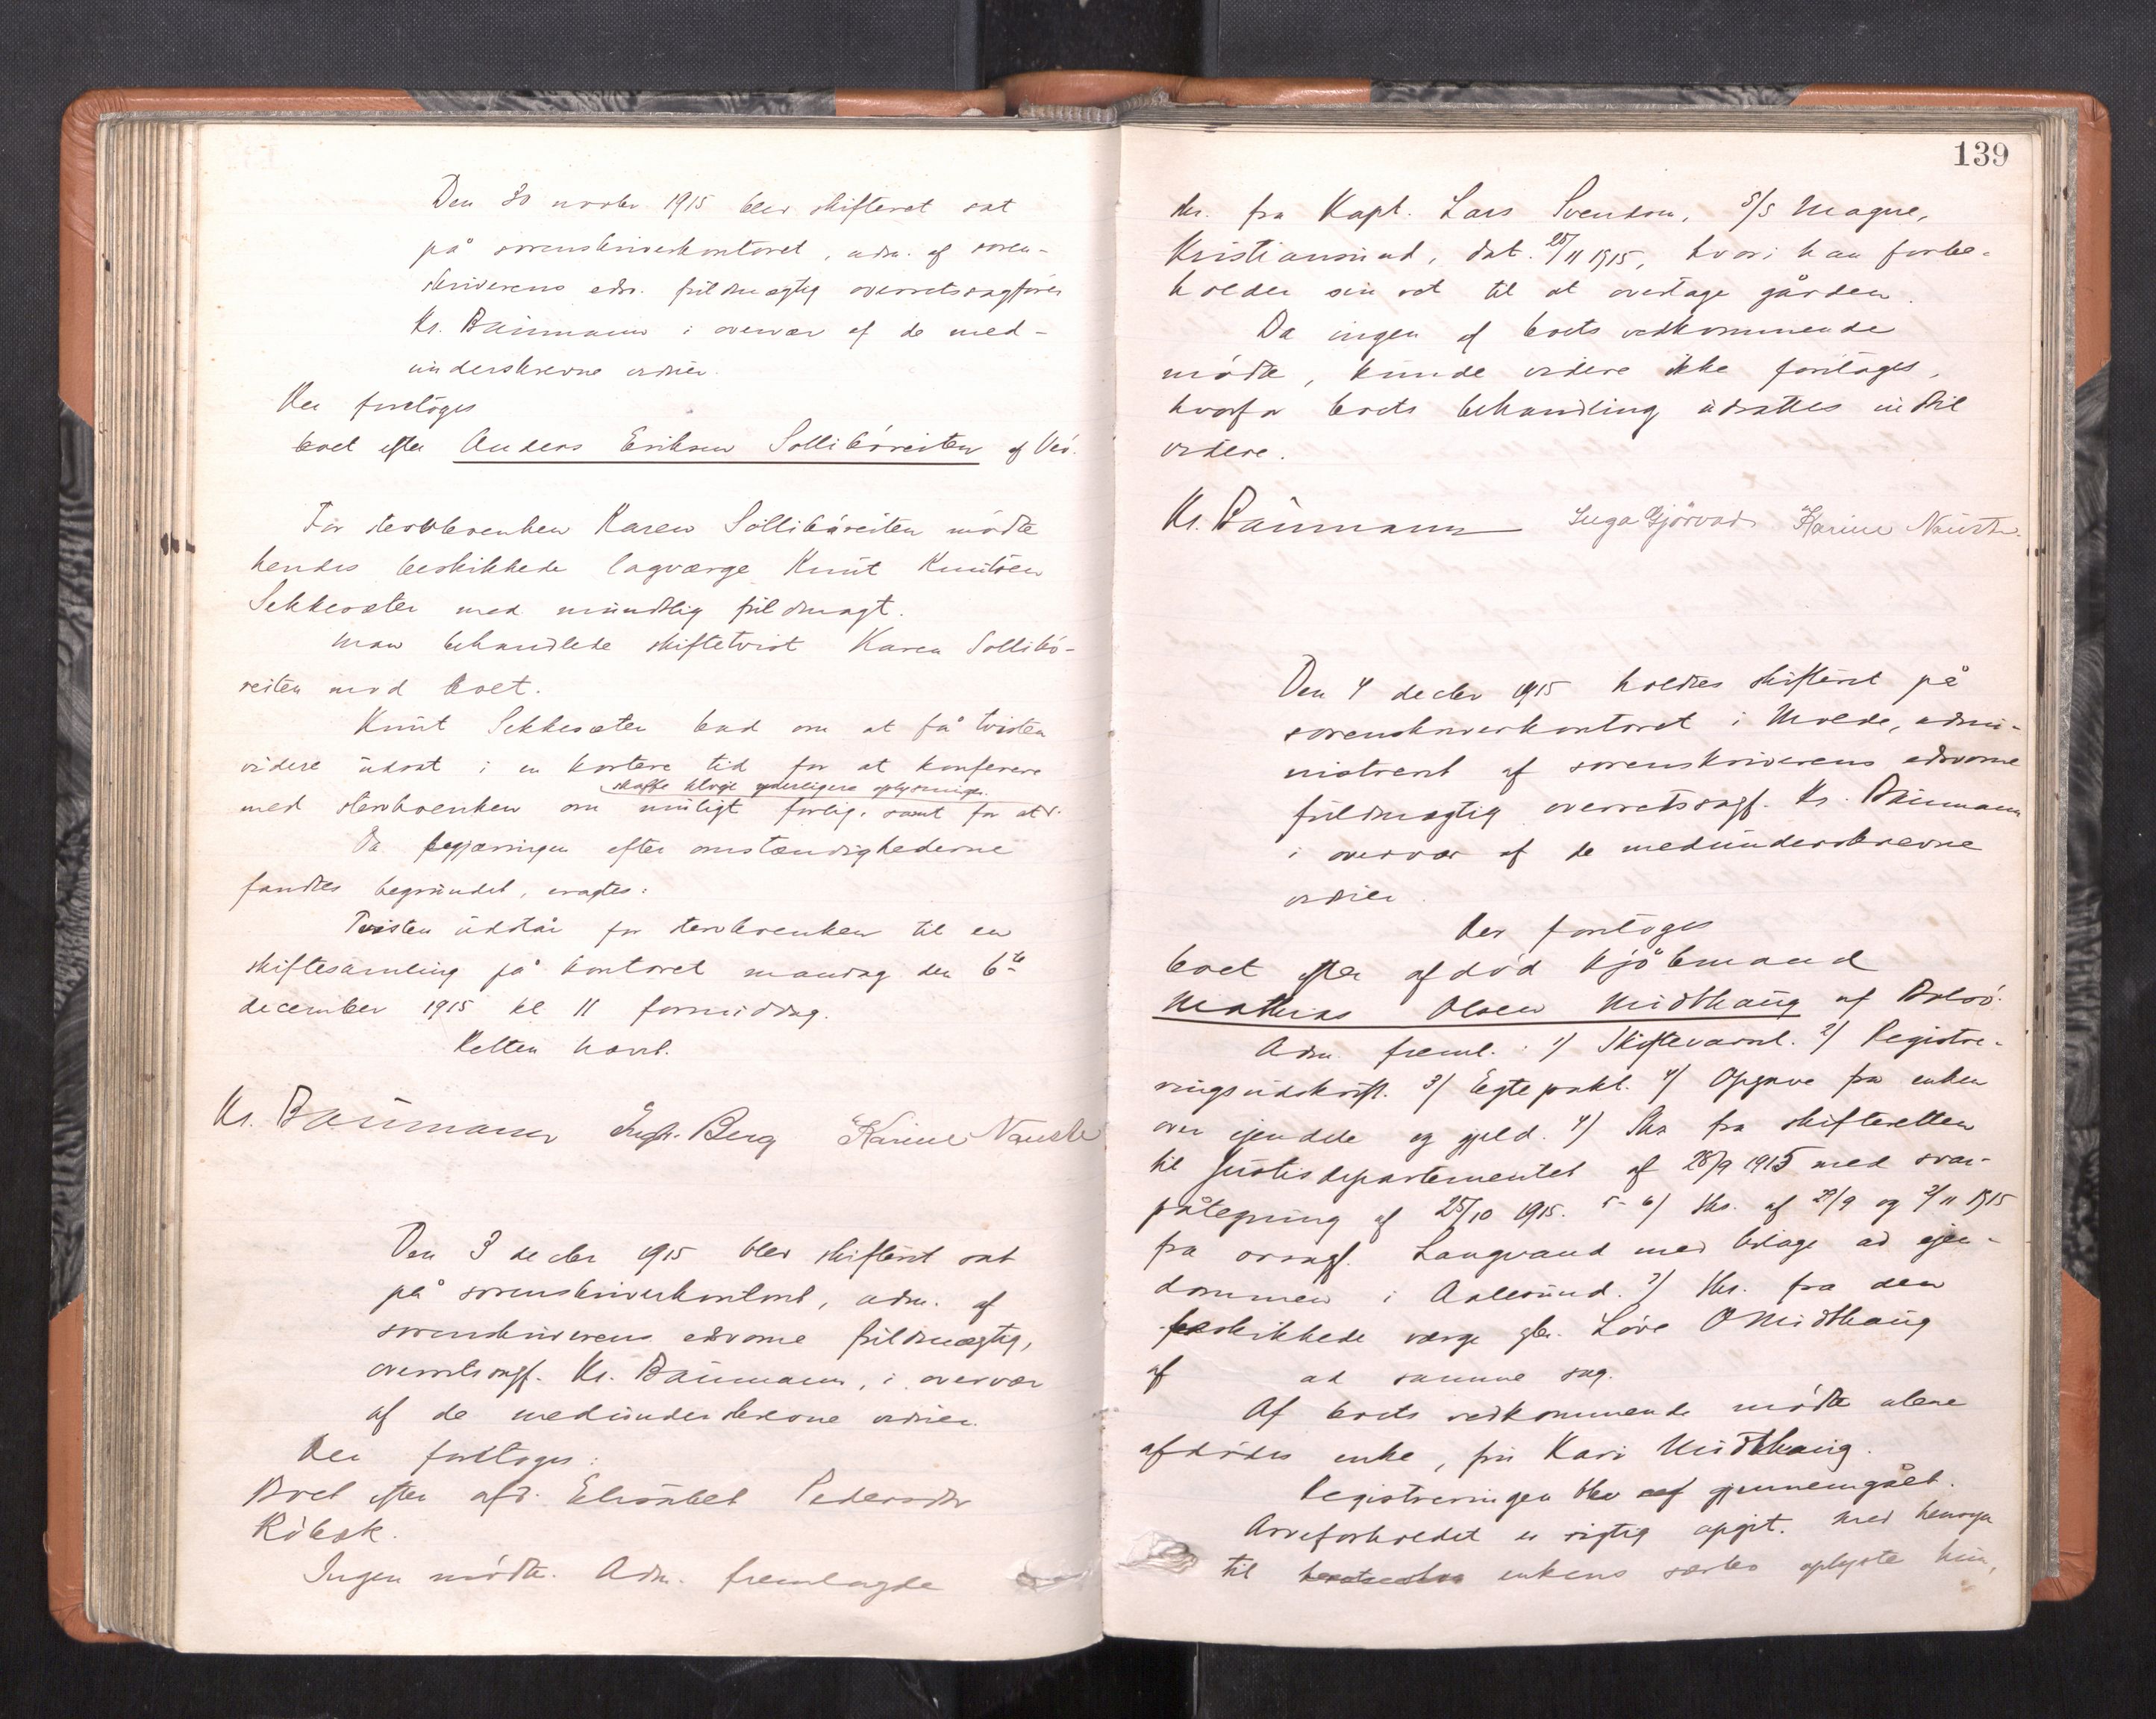 Den 30 novbr 1915 blev skifteret sat
på sorenskriverkontoret, adm. af soren-
skriverens edsv. fuldmægtig overretssagfører
Kr. Baumann i overvær af de med-
underskrevne vidner.
Der foretoges
boet efter Anders Eriksen Sollibøreiten af Veö.
For stervboenken Karen Sollibøreiten mødte
hendes beskikkede lagværge Knut Knutsen
Sekkesæter med mundtlig fuldmagt.
Man behandlede skiftetvist Karen Sollibö-
reiten mod boet.
Knut Sekkesæter bad om at få tvisten
videre udsat i en kortere tid for at konferere
skaffe tilveie yderligere oplysninger.
med stervboenken om muligt forlig, samt for at
Da begjæringen efter omstændighederne
fandtes begrundet, eragtes:
Tvisten udstår for stervboenken til en
skiftesamling på kontoret mandag den 6te
december 1915 kl 11 formiddag.
Retten hævet.
Kr. Baumann Ingb. Berg Karine Nauste
Den 3 decbr 1915 blev skifteret sat
på sorenskriverkontoret, adm. af
sorenskriverens edsvorne fuldmægtig,
overretssagf. Kr. Baumann, i overvær
af de medunderskrevne vidner.
Der foretoges:
Boet efter afd. Elisabet Pedersdtr
Röbæk.
Ingen mødte. Adm. fremlagde
139
skr. fra Kapt. Lars Svendsen, S/S Magne,
Kristiansund, dat. 25/11 1915, hvori han forbe-
holder sin ret til at overtage gården.
Da ingen af boets vedkommende
mødte, kunde videre ikke foretages,
hvorfor boets behandling udsattes indtil
videre.
Kr. Baumann Inga Gjörvad Karine Nauste.
Den 4 decbr 1915 holdtes skifteret på
sorenskriverkontoret i Molde, admi-
nistreret af sorenskriverens edsvorne
fuldmægtig overretssagf. Kr. Baumann
i overvær af de medunderskrevne
vidner.
Der foretoges
boet efter afdød kjöbmand
Mathias Olsen Midthaug af Bolsö.
Adm. freml.: 1/ Skiftevarsel. 2/ Registre-
ringsudskrift. 3/ Egtepakt. 4/ Opgave fra enken
over eiendele og gjeld. 4/ Skr fra skifteretten
til Justisdepartementet af 28/9 1915 med svar-
påtegning af 25/10 1915. 5-6/ skr. af 29/9 og 2/11 1915
fra orsagf. Langvand med bilage ad eien-
dommen i Aalesund. 7/ Skr. fra den
beskikkede værge gbr. Love O Midthaug
af ad samme sag.
Af boets vedkommende mødte alene
afdødes enke, fru Kari Midthaug.
Registreringen blev gjennemgået.
Arveforholdet er rigtig opgit. Med hensyn
til enkens særbo oplyste hun,